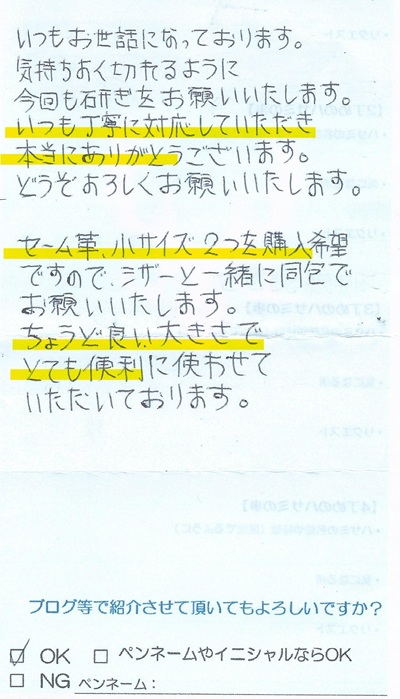 いつもお世話になっております。
気持ちよく切れるように
今回も研ぎをお願いいたします。
いつも丁寧に対応していただき
本当にありがとうございます。
どうぞよろしくお願いいたします。
セーム革、小サイズ2つを購入希望
ですので、シザーと一緒に同包で
お願いいたします。
ちょうど良い大きさで
とても便利に使わせて
いただいております。
ブログ等で紹介させて頂いてもよろしいですか？
☑ OK □ ペンネームやイニシャルならOK
□ NG ペンネーム：